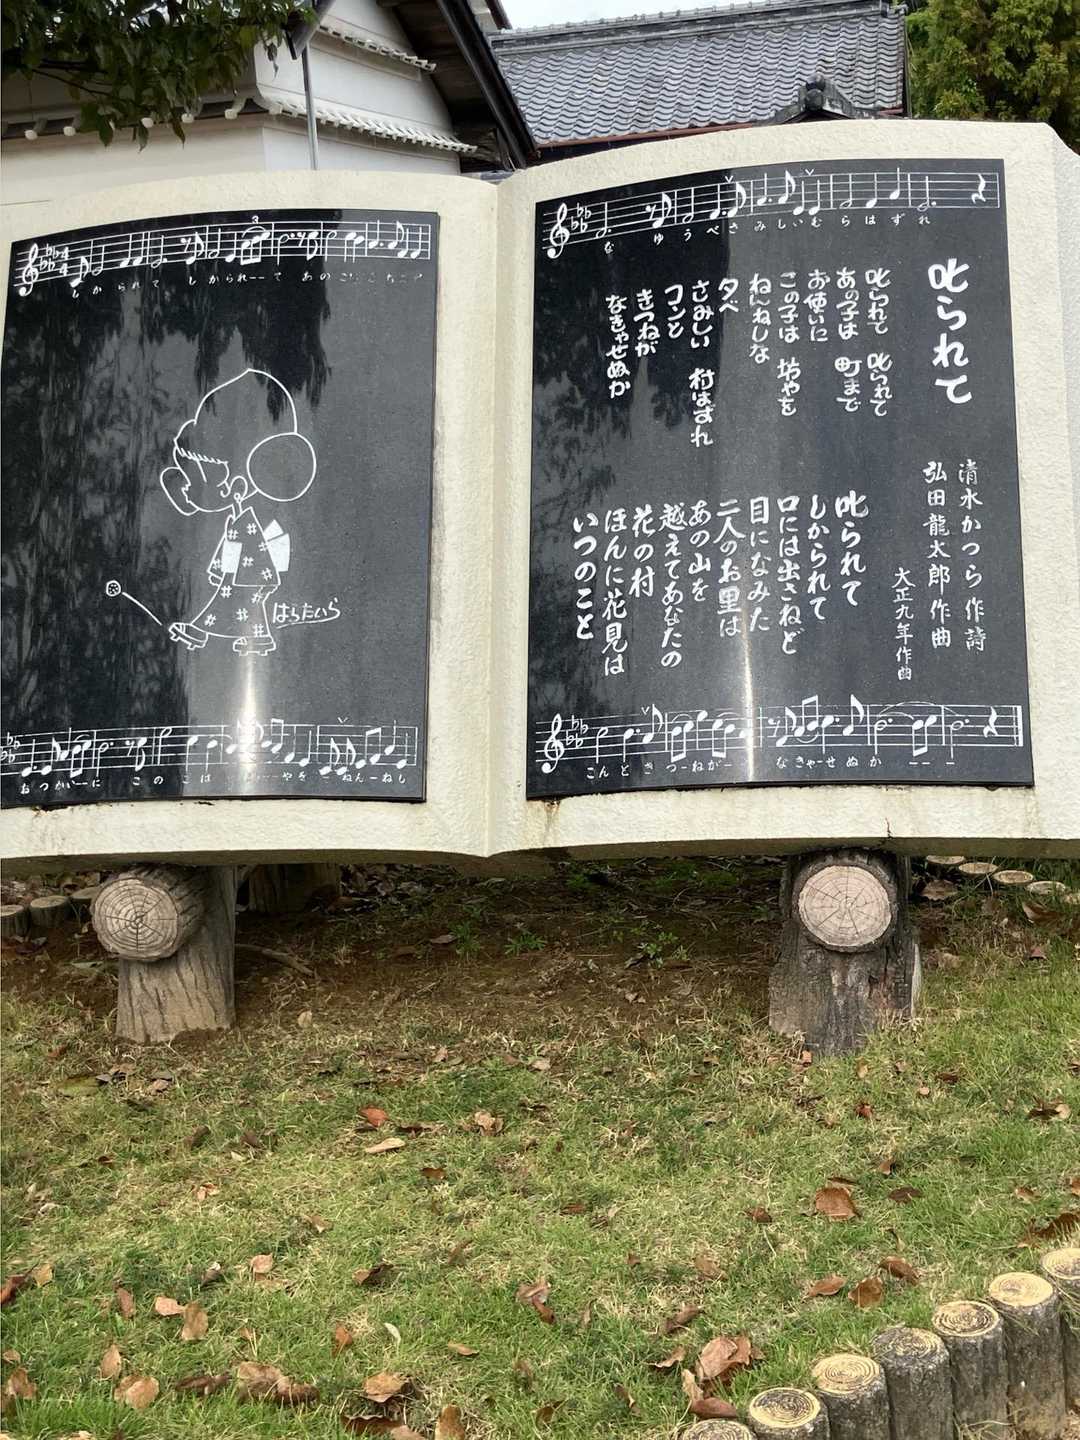 しかられて しかられーーて あのこ
おつかいーに このこは やを ねんーねし
はらたいら
な ゆうべ さみしいむらはずれ
叱られて
清水かつら作詩
弘田龍太郎作曲
大正九年作曲
叱られて 叱られて
あの子は 町まで
お使いに
この子は 坊やを
ねんねしな
夕べ
さみしい 村はずれ
コンと
きつねが
なきゃせぬか
叱られて
しかられて
口には出さねど
目になみた
二人のお里は
あの山を
越えてあなたの
花の村
ほんに花見は
いつのこと
こんときつーねがー なきゃーせぬか ーー ー